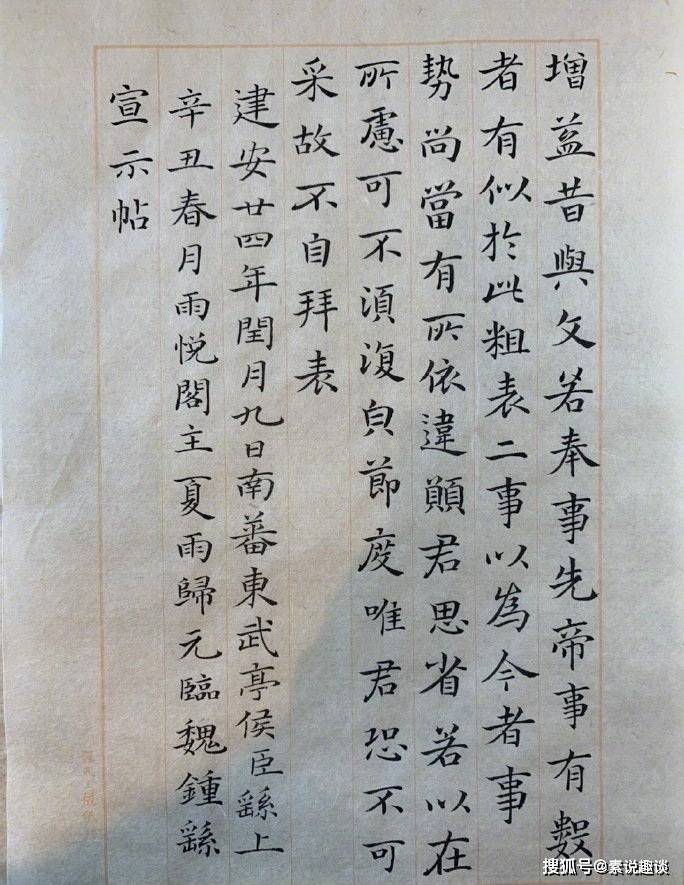 增益昔與文若奉事先帝事有數
者有似於此粗表二事以為今者事
勢尚當有所依違願君思省若以在
所慮可不須復皃節度唯君恐不可
采故不自拜表
建安廿四年閏月九日南蕃東武亭侯臣繇上
辛丑春月雨悦閣主夏雨歸元臨魏鍾繇
宣示帖
搜狐号@素说趣谈